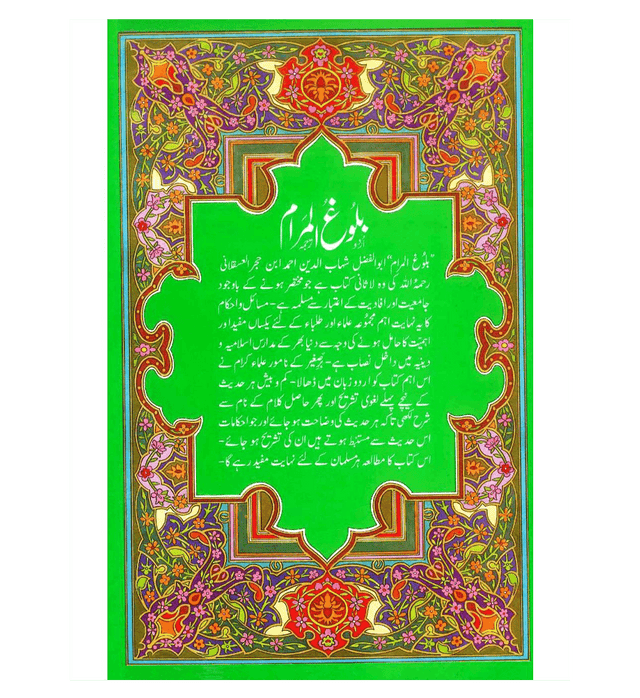 بلُوغُ المرَام
اُردُو ترجمہ
"بلُوغ المرام" ابوالفضل شہاب الدین احمد ابن حجر العسقلانی
رحمۃ اللہ کی وہ لاثانی کتاب ہے جو مختصر ہونے کے باوجود
جامعیت اور افادیت کے اعتبار سے مسلمہ ہے - مسائل و احکام
کا یہ نہایت اہم مجموعہ علماء اور طلباء کے لئے یکساں مفید اور
اہمیت کا حامل ہونے کی وجہ سے دنیا بھر کے مدارس اسلامیہ و
دینیہ میں داخل نصاب ہے - برِّصغیر کے نامور علماء کرام نے
اس اہم کتاب کو اردو زبان میں ڈھالا - کم و بیش ہر حدیث
کے نیچے پہلے لغوی تشریح اور پھر حاصل کلام کے نام سے
شرح لکھی تاکہ ہر حدیث کی وضاحت ہو جائے اور جو احکامات
اس حدیث سے مستنبط ہوتے ہیں ان کی تشریح ہو جائے -
اس کتاب کا مطالعہ ہر مسلمان کے لئے نہایت مفید رہے گا -